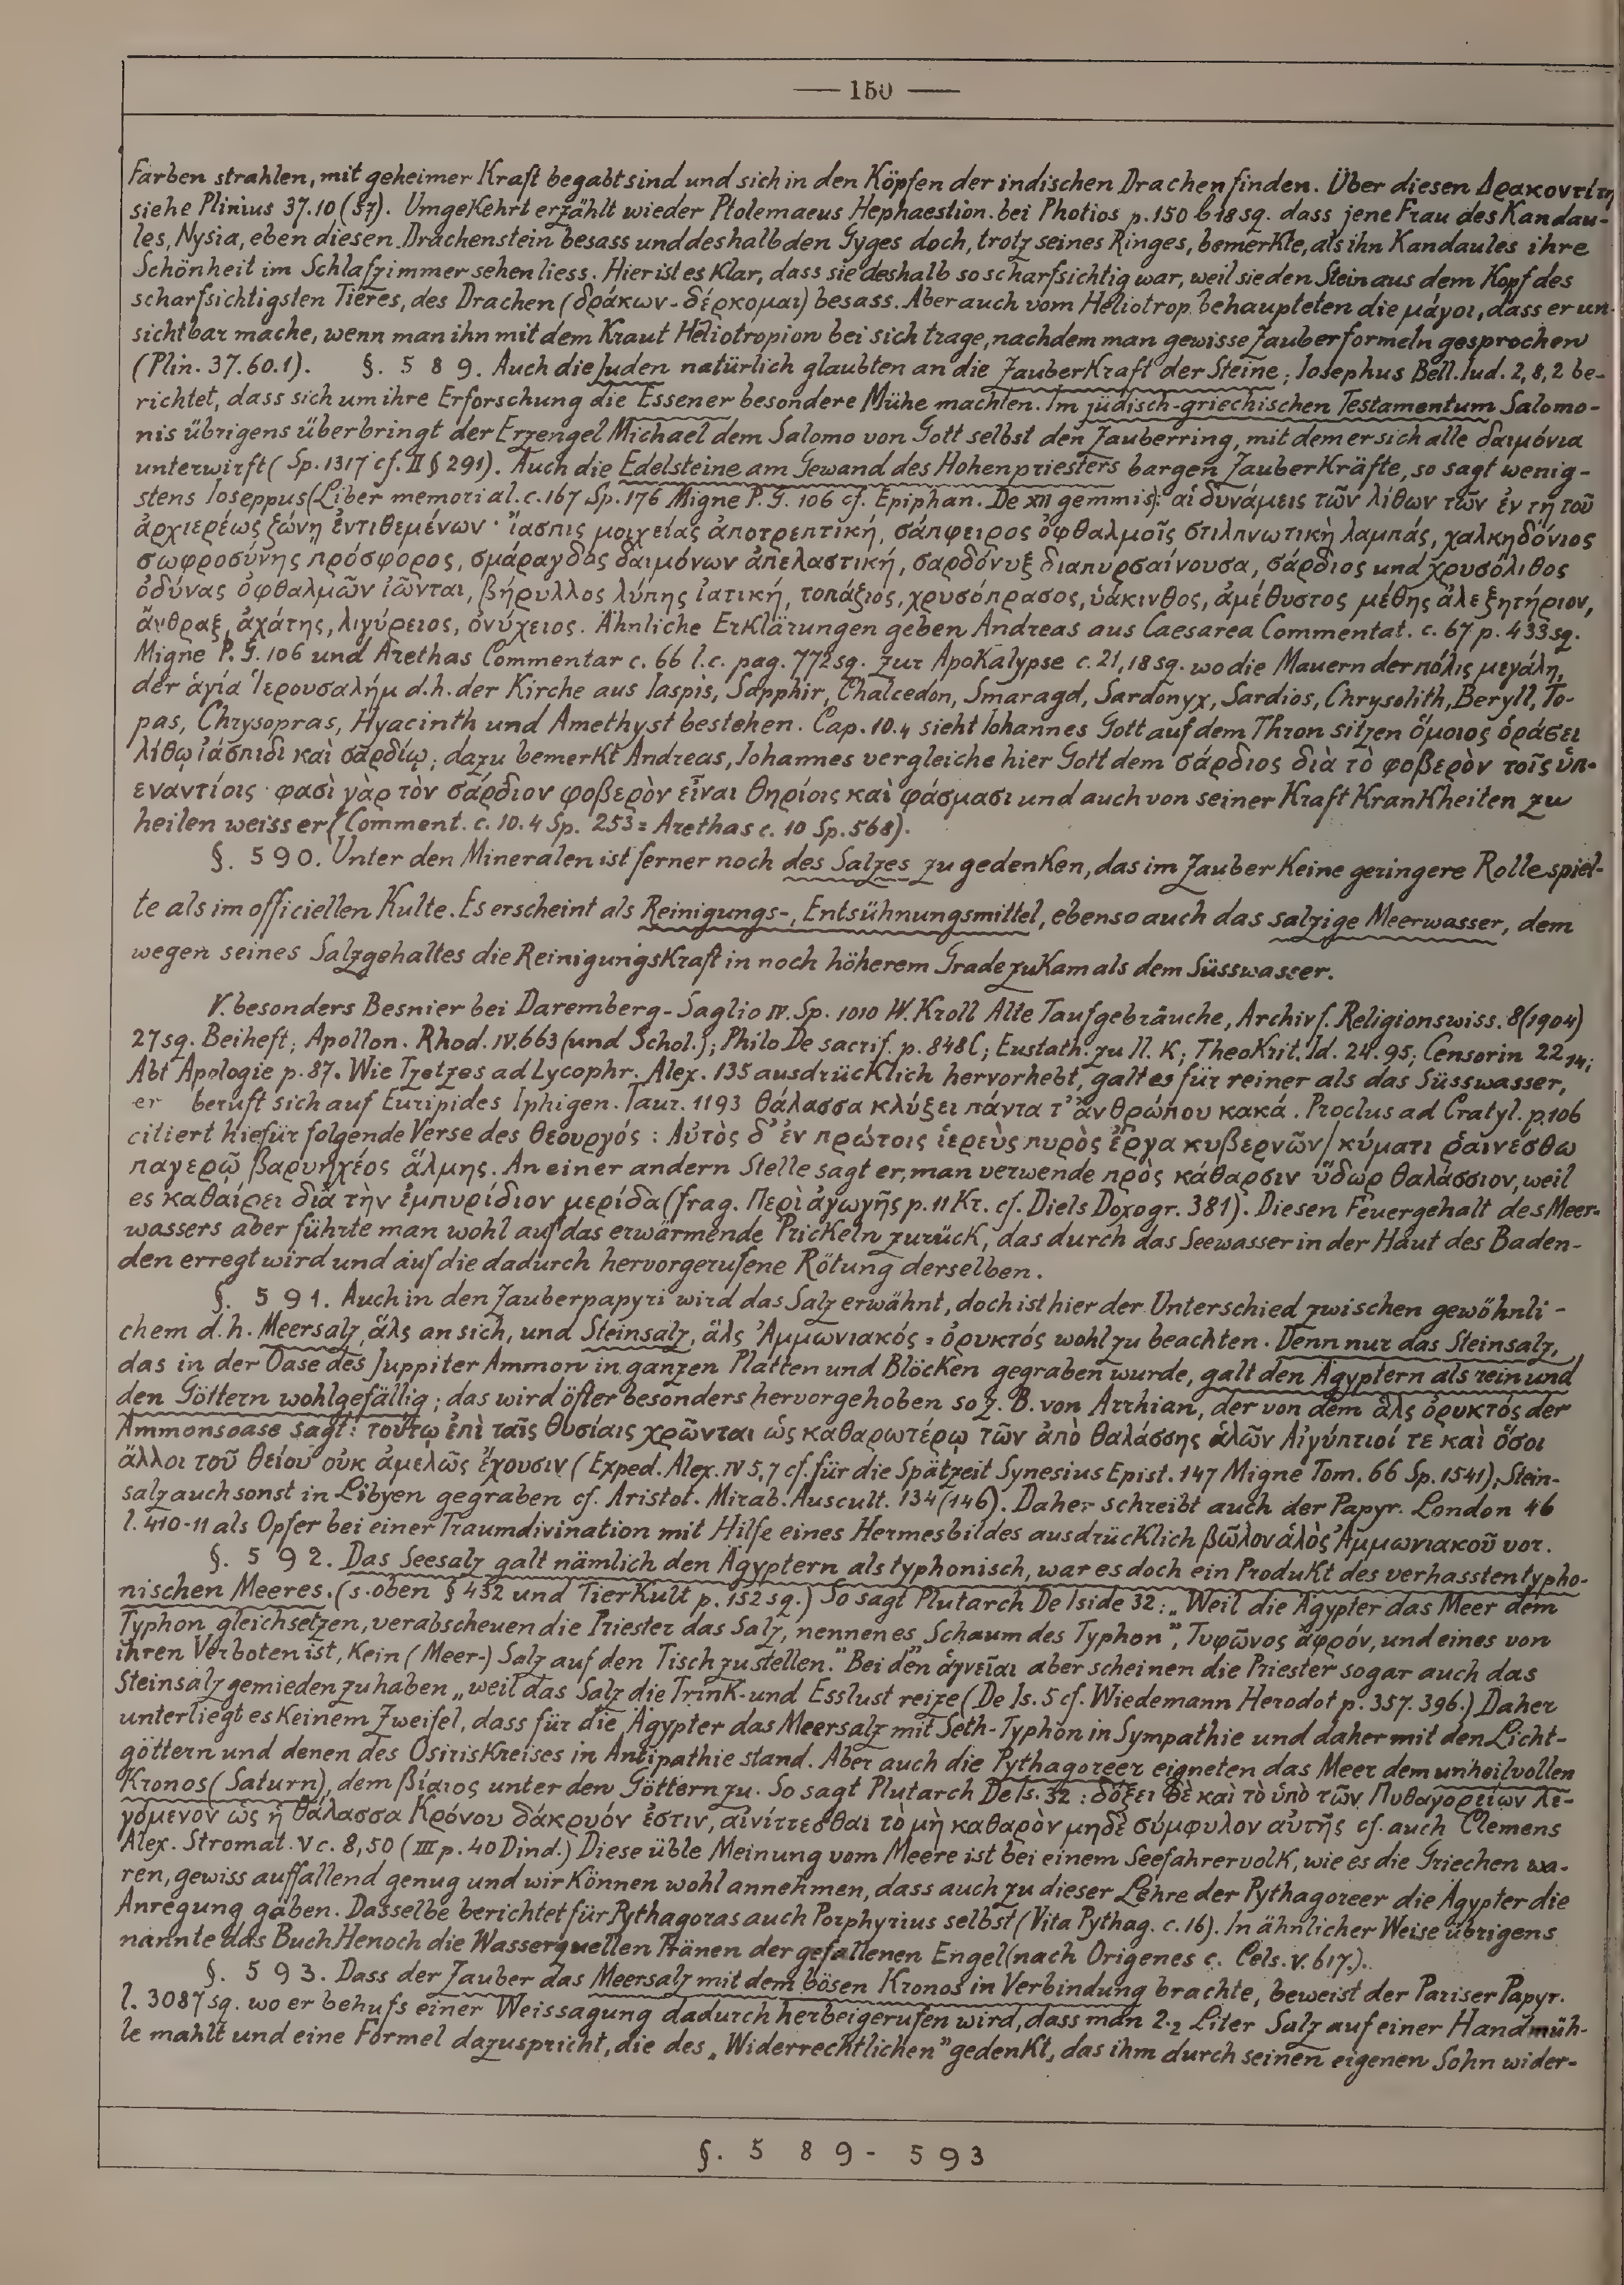 — 150 —
Farben strahlen, mit geheimer Kraft begabt sind und sich in den Köpfen der indischen Drachen finden. Über diesen Δρακοντίτη
siehe Plinius 37.10 (57). Umgekehrt erzählt wieder Ptolemaeus Hephaestion. bei Photios p. 150 b 18 sq. dass jene Frau des Kandau-
les, Nysia, eben diesen Drachenstein besass und deshalb den Gyges doch, trotz seines Ringes, bemerkte, als ihn Kandaules ihre
Schönheit im Schlafzimmer sehen liess. Hier ist es klar, dass sie deshalb so scharfsichtig war, weil sie den Stein aus dem Kopf des
scharfsichtigsten Tieres, des Drachen (δράκων - δέρκομαι) besass. Aber auch vom Heliotrop behaupteten die μάγοι, dass er un-
sichtbar mache, wenn man ihn mit dem Kraut Heliotropion bei sich trage, nachdem man gewisse Zauberformeln gesprochen
(Plin. 37.60.1). §. 589. Auch die Juden natürlich glaubten an die Zauberkraft der Steine; Iosephus Bell. Iud. 2,8,2 be-
richtet, dass sich um ihre Erforschung die Essener besondere Mühe machten. Im jüdisch-griechischen Testamentum Salomo-
nis übrigens überbringt der Erzengel Michael dem Salomo von Gott selbst den Zauberring, mit dem er sich alle δαιμόνια
unterwirft (Sp. 1317 cf. II § 291). Auch die Edelsteine am Gewand des Hohenpriesters bargen Zauberkräfte, so sagt wenig-
stens Ioseppus (Liber memorial. c. 167 Sp. 176 Migne P. G. 106 cf. Epiphan. De XII gemmis): αἱ δυνάμεις τῶν λίθων τῶν ἐν τῇ τοῦ
ἀρχιερέως ζώνῃ ἐντιθεμένων · ἴασπις μοιχείας ἀποτρεπτική, σάπφειρος ὀφθαλμοῖς στιλπνωτικὴ λαμπάς, χαλκηδόνιος
σωφροσύνης πρόσφορος, σμάραγδος δαιμόνων ἀπελαστική, σαρδόνυξ διαπυρσαίνουσα, σάρδιος und χρυσόλιθος
ὀδύνας ὀφθαλμῶν ἰῶνται, βήρυλλος λύπης ἰατική, τοπάζιος, χρυσόπρασος, ὑάκινθος, ἀμέθυστος μέθης ἀλεξητήριον,
ἄνθραξ, ἀχάτης, λιγύρειος, ὀνύχειος. Ähnliche Erklärungen geben Andreas aus Caesarea Commentat. c. 67 p. 433 sq.
Migne P. G. 106 und Arethas Commentar c. 66 l. c. pag. 772 sq. zur Apokalypse c. 21, 18 sq. wo die Mauern der πόλις μεγάλη,
der ἁγία Ἱερουσαλήμ d. h. der Kirche aus Iaspis, Sapphir, Chalcedon, Smaragd, Sardonyx, Sardios, Chrysolith, Beryll, To-
pas, Chrysopras, Hyacinth und Amethyst bestehen. Cap. 10.4 sieht Iohannes Gott auf dem Thron sitzen ὅμοιος ὁράσει
λίθῳ ἰάσπιδι καὶ σαρδίῳ; dazu bemerkt Andreas, Iohannes vergleiche hier Gott dem σάρδιος διὰ τὸ φοβερὸν τοῖς ὑπ-
εναντίοις · φασὶ γὰρ τὸν σάρδιον φοβερὸν εἶναι θηρίοις καὶ φάσμασι und auch von seiner Kraft Krankheiten zu
heilen weiss er (Comment. c. 10.4 Sp. 253 = Arethas c. 10 Sp. 568).
§. 590. Unter den Mineralen ist ferner noch des Salzes zu gedenken, das im Zauber keine geringere Rolle spiel-
te als im officiellen Kulte. Es erscheint als Reinigungs-, Entsühnungsmittel, ebenso auch das salzige Meerwasser, dem
wegen seines Salzgehaltes die Reinigungskraft in noch höherem Grade zukam als dem Süsswasser.
V. besonders Besnier bei Daremberg-Saglio IV. Sp. 1010 W. Kroll Alte Taufgebräuche, Archiv f. Religionswiss. 8 (1904)
27 sq. Beiheft; Apollon. Rhod. IV. 663 (und Schol.); Philo De sacrif. p. 848 C; Eustath. zu Il. K; Theokrit. Id. 24. 95; Censorin 22,14;
Abt Apologie p. 87. Wie Tzetzes ad Lycophr. Alex. 135 ausdrücklich hervorhebt, galt es für reiner als das Süsswasser,
er beruft sich auf Euripides Iphigen. Taur. 1193 θάλασσα κλύζει πάντα τ' ἀνθρώπου κακά. Proclus ad Cratyl. p. 106
citiert hiefür folgende Verse des θεουργός: Αὐτὸς δ' ἐν πρώτοις ἱερεὺς πυρὸς ἔργα κυβερνῶν / κύματι ῥαινέσθω
παγερῷ βαρυηχέος ἅλμης. An einer andern Stelle sagt er, man verwende πρὸς κάθαρσιν ὕδωρ θαλάσσιον, weil
es καθαίρει διὰ τὴν ἐμπυρίδιον μερίδα (frag. Περὶ ἀγωγῆς p. 11 Kr. cf. Diels Doxogr. 381). Diesen Feuergehalt des Meer-
wassers aber führte man wohl auf das erwärmende Prickeln zurück, das durch das Seewasser in der Haut des Baden-
den erregt wird und auf die dadurch hervorgerufene Rötung derselben.
§. 591. Auch in den Zauberpapyri wird das Salz erwähnt, doch ist hier der Unterschied zwischen gewöhnli-
chem d. h. Meersalz ἅλς an sich, und Steinsalz, ἅλς Ἀμμωνιακός = ὀρυκτός wohl zu beachten. Denn nur das Steinsalz,
das in der Oase des Juppiter Ammon in ganzen Platten und Blöcken gegraben wurde, galt den Ägyptern als rein und
den Göttern wohlgefällig; das wird öfter besonders hervorgehoben so z. B. von Arrhian, der von dem ἅλς ὀρυκτός der
Ammonsoase sagt: τούτῳ ἐπὶ ταῖς θυσίαις χρῶνται ὡς καθαρωτέρῳ τῶν ἀπὸ θαλάσσης ἁλῶν Αἰγύπτιοί τε καὶ ὅσοι
ἄλλοι τοῦ θείου οὐκ ἀμελῶς ἔχουσιν (Exped. Alex. IV 5,7 cf. für die Spätzeit Synesius Epist. 147 Migne Tom. 66 Sp. 1541); Stein-
salz auch sonst in Libyen gegraben cf. Aristot. Mirab. Auscult. 134 (146). Daher schreibt auch der Papyr. London 46
l. 410-11 als Opfer bei einer Traumdivination mit Hilfe eines Hermesbildes ausdrücklich βῶλον ἁλὸς Ἀμμωνιακοῦ vor.
§. 592. Das Seesalz galt nämlich den Ägyptern als typhonisch, war es doch ein Produkt des verhassten typho-
nischen Meeres. (s. oben § 432 und Tierkult p. 152 sq.) So sagt Plutarch De Iside 32: „Weil die Ägypter das Meer dem
Typhon gleichsetzen, verabscheuen die Priester das Salz, nennen es „Schaum des Typhon", Τυφῶνος ἀφρόν, und eines von
ihren Verboten ist, kein (Meer-) Salz auf den Tisch zu stellen." Bei den ἁγνεῖαι aber scheinen die Priester sogar auch das
Steinsalz gemieden zu haben „weil das Salz die Trink- und Esslust reize (De Is. 5 cf. Wiedemann Herodot p. 357. 396.) Daher
unterliegt es keinem Zweifel, dass für die Ägypter das Meersalz mit Seth-Typhon in Sympathie und daher mit den Licht-
göttern und denen des Osiriskreises in Antipathie stand. Aber auch die Pythagoreer eigneten das Meer dem unheilvollen
Kronos (Saturn), dem βίαιος unter den Göttern zu. So sagt Plutarch De Is. 32: δόξει δὲ καὶ τὸ ὑπὸ τῶν Πυθαγορείων λε-
γόμενον ὡς ἡ θάλασσα Κρόνου δάκρυόν ἐστιν, αἰνίττεσθαι τὸ μὴ καθαρὸν μηδὲ σύμφυλον αὐτῆς cf. auch Clemens
Alex. Stromat. V c. 8, 50 (III p. 40 Dind.) Diese üble Meinung vom Meere ist bei einem Seefahrervolk, wie es die Griechen wa-
ren, gewiss auffallend genug und wir können wohl annehmen, dass auch zu dieser Lehre der Pythagoreer die Ägypter die
Anregung gaben. Dasselbe berichtet für Pythagoras auch Porphyrius selbst (Vita Pythag. c. 16). In ähnlicher Weise übrigens
nannte das Buch Henoch die Wasserquellen Tränen der gefallenen Engel (nach Origenes c. Cels. V. 617.).
§. 593. Dass der Zauber das Meersalz mit dem bösen Kronos in Verbindung brachte, beweist der Pariser Papyr.
l. 3087 sq. wo er behufs einer Weissagung dadurch herbeigerufen wird, dass man 2.2 Liter Salz auf einer Handmüh-
le mahlt und eine Formel dazuspricht, die des „Widerrechtlichen" gedenkt, das ihm durch seinen eigenen Sohn wider-
§. 589 - 593